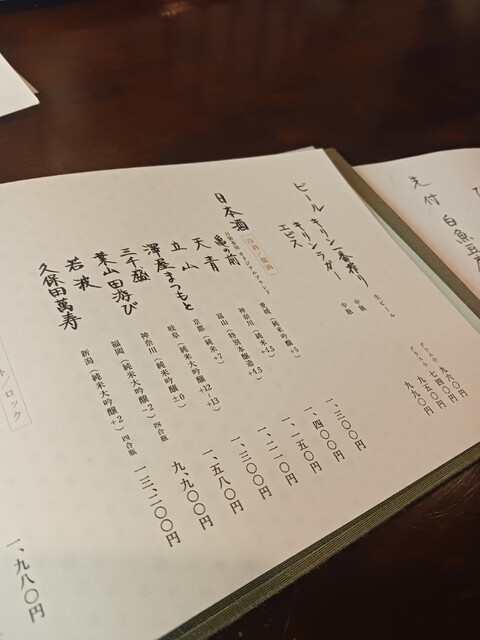 先付
白魚豆
ビール
キリン一番搾り 生ビール 九六〇円
七四〇円
キリンラガー 中瓶 九五〇円
エビス 中瓶 九九〇円
日本酒
冷酒/燗酒
亀の前 愛媛(純米吟醸+5) 一、三〇〇円
天青 神奈川(純米+5.5) 一、四〇〇円
立山 富山(特別本醸造+4.5) 一、一五〇円
澤屋まつもと 京都(純米+7) 一、二一〇円
三千盛 岐阜(純米大吟醸+12~+13) 一、三〇〇円
葉山田游び 神奈川(純米吟醸±0) 一、五八〇円
若波 福岡(純米大吟醸-2)四合瓶 九、九〇〇円
久保田萬寿 新潟(純米大吟醸+2)四合瓶 一三、二〇〇円
ト/ロック
一、九八〇円